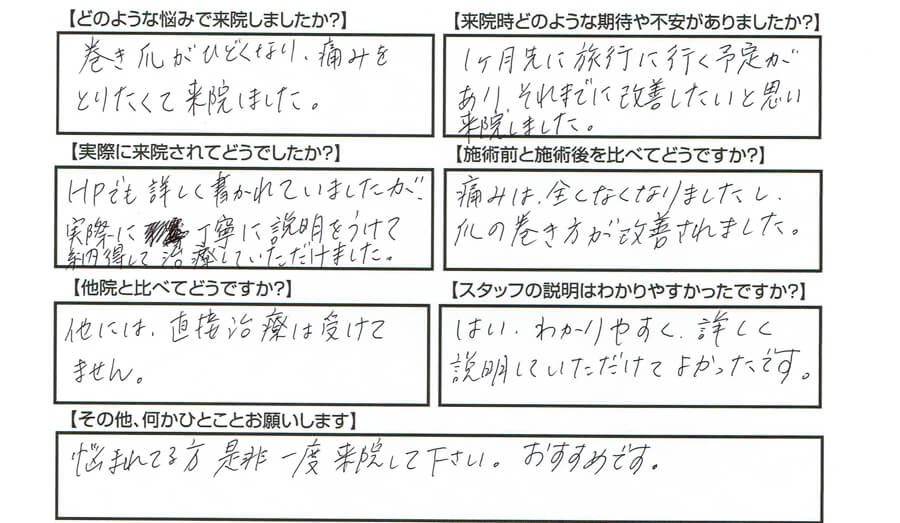 【どのような悩みで来院しましたか?】
巻き爪がひどくなり、痛みを
とりたくて来院しました。
【来院時どのような期待や不安がありましたか?】
1ヶ月先に旅行に行く予定が
あり、それまでに改善したいと思い
来院しました。
【実際に来院されてどうでしたか?】
HPでも詳しく書かれていましたが、
実際に 丁寧に説明をうけて
納得して治療していただけました。
【施術前と施術後を比べてどうですか?】
痛みは、全くなくなりましたし、
爪の巻き方が改善されました。
【他院と比べてどうですか?】
他には、直接治療は受けて
ません。
【スタッフの説明はわかりやすかったですか?】
はい、わかりやすく、詳しく
説明していただけてよかったです。
【その他、何かひとことお願いします】
悩まれてる方是非一度来院して下さい。おすすめです。